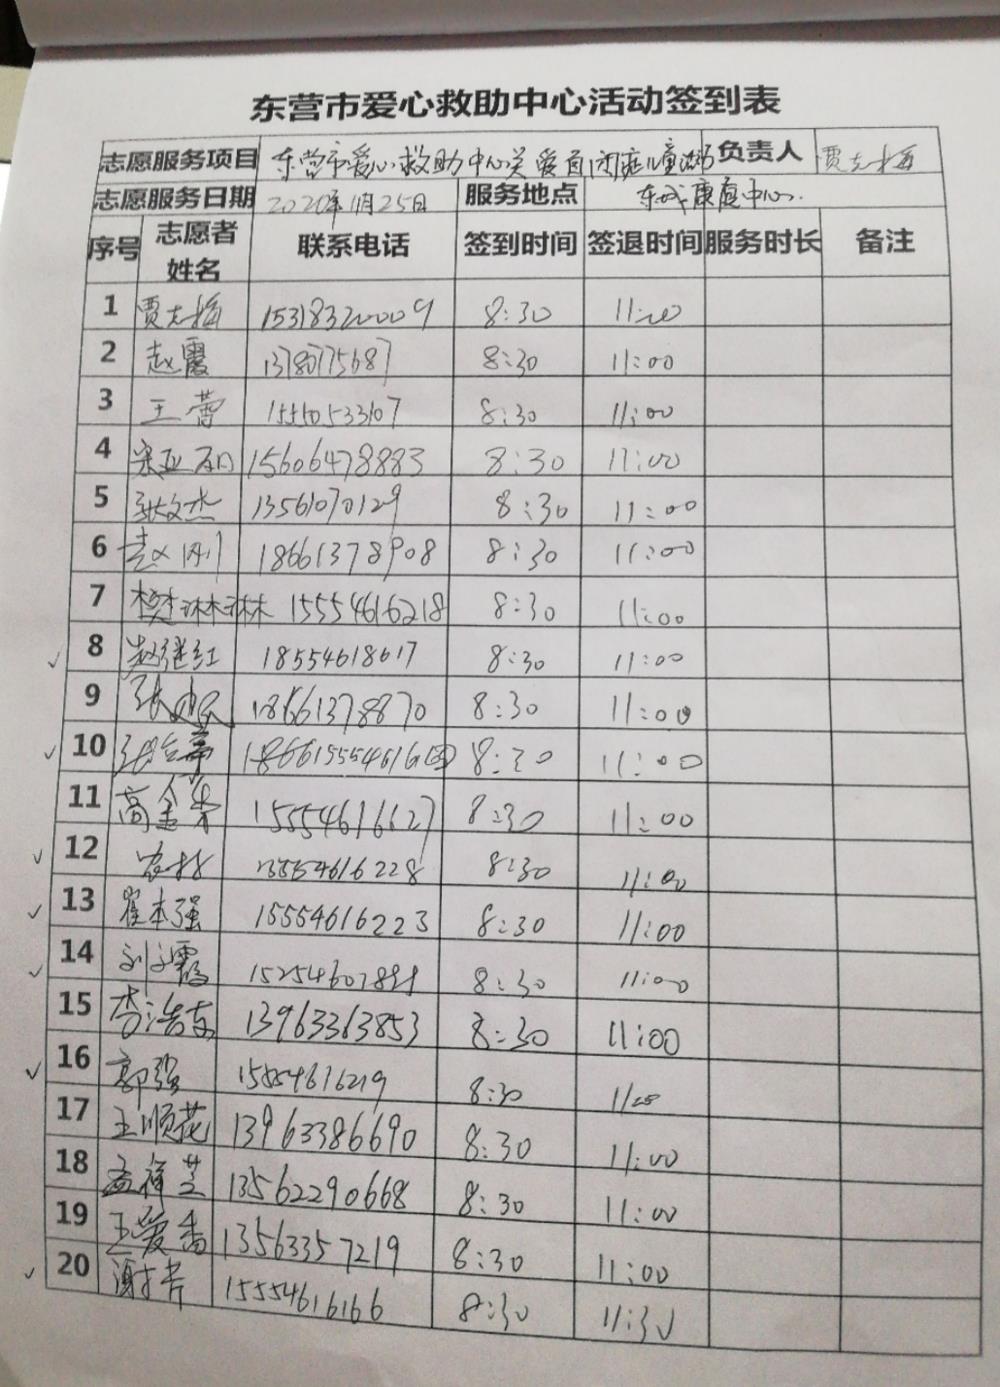 东营市爱心救助中心活动签到表
志愿服务项目 东营市爱心救助中心关爱自闭症儿童 负责人 贾志梅
志愿服务日期 2020年11月25日 服务地点 东城康复中心
序号 志愿者姓名 联系电话 签到时间 签退时间 服务时长 备注
1 贾志梅 15318320009 8:30 11:00
2 赵霞 13780775687 8:30 11:00
3 王蕾 15550533107 8:30 11:00
4 宋亚 15606478883 8:30 11:00
5 张文杰 13561070129 8:30 11:00
6 刚 18661378908 8:30 11:00
7 樊琳琳 15554616218 8:30 11:00
8 赵继红 18554618617 8:30 11:00
9 张 18661378870 8:30 11:00
10 张 8:30 11:00
11 高金 15554616627 8:30 11:00
12 15554616228 8:30 11:00
13 崔本强 15554616223 8:30 11:00
14 刘霞 8:30 11:00
15 李浩东 13963363853 8:30 11:00
16 郭强 15554616219 8:30 11:00
17 王顺花 13963386690 8:30 11:00
18 孟祥芝 13562290668 8:30 11:00
19 王爱香 13563357219 8:30 11:00
20 谢 15554616166 8:30 11:30